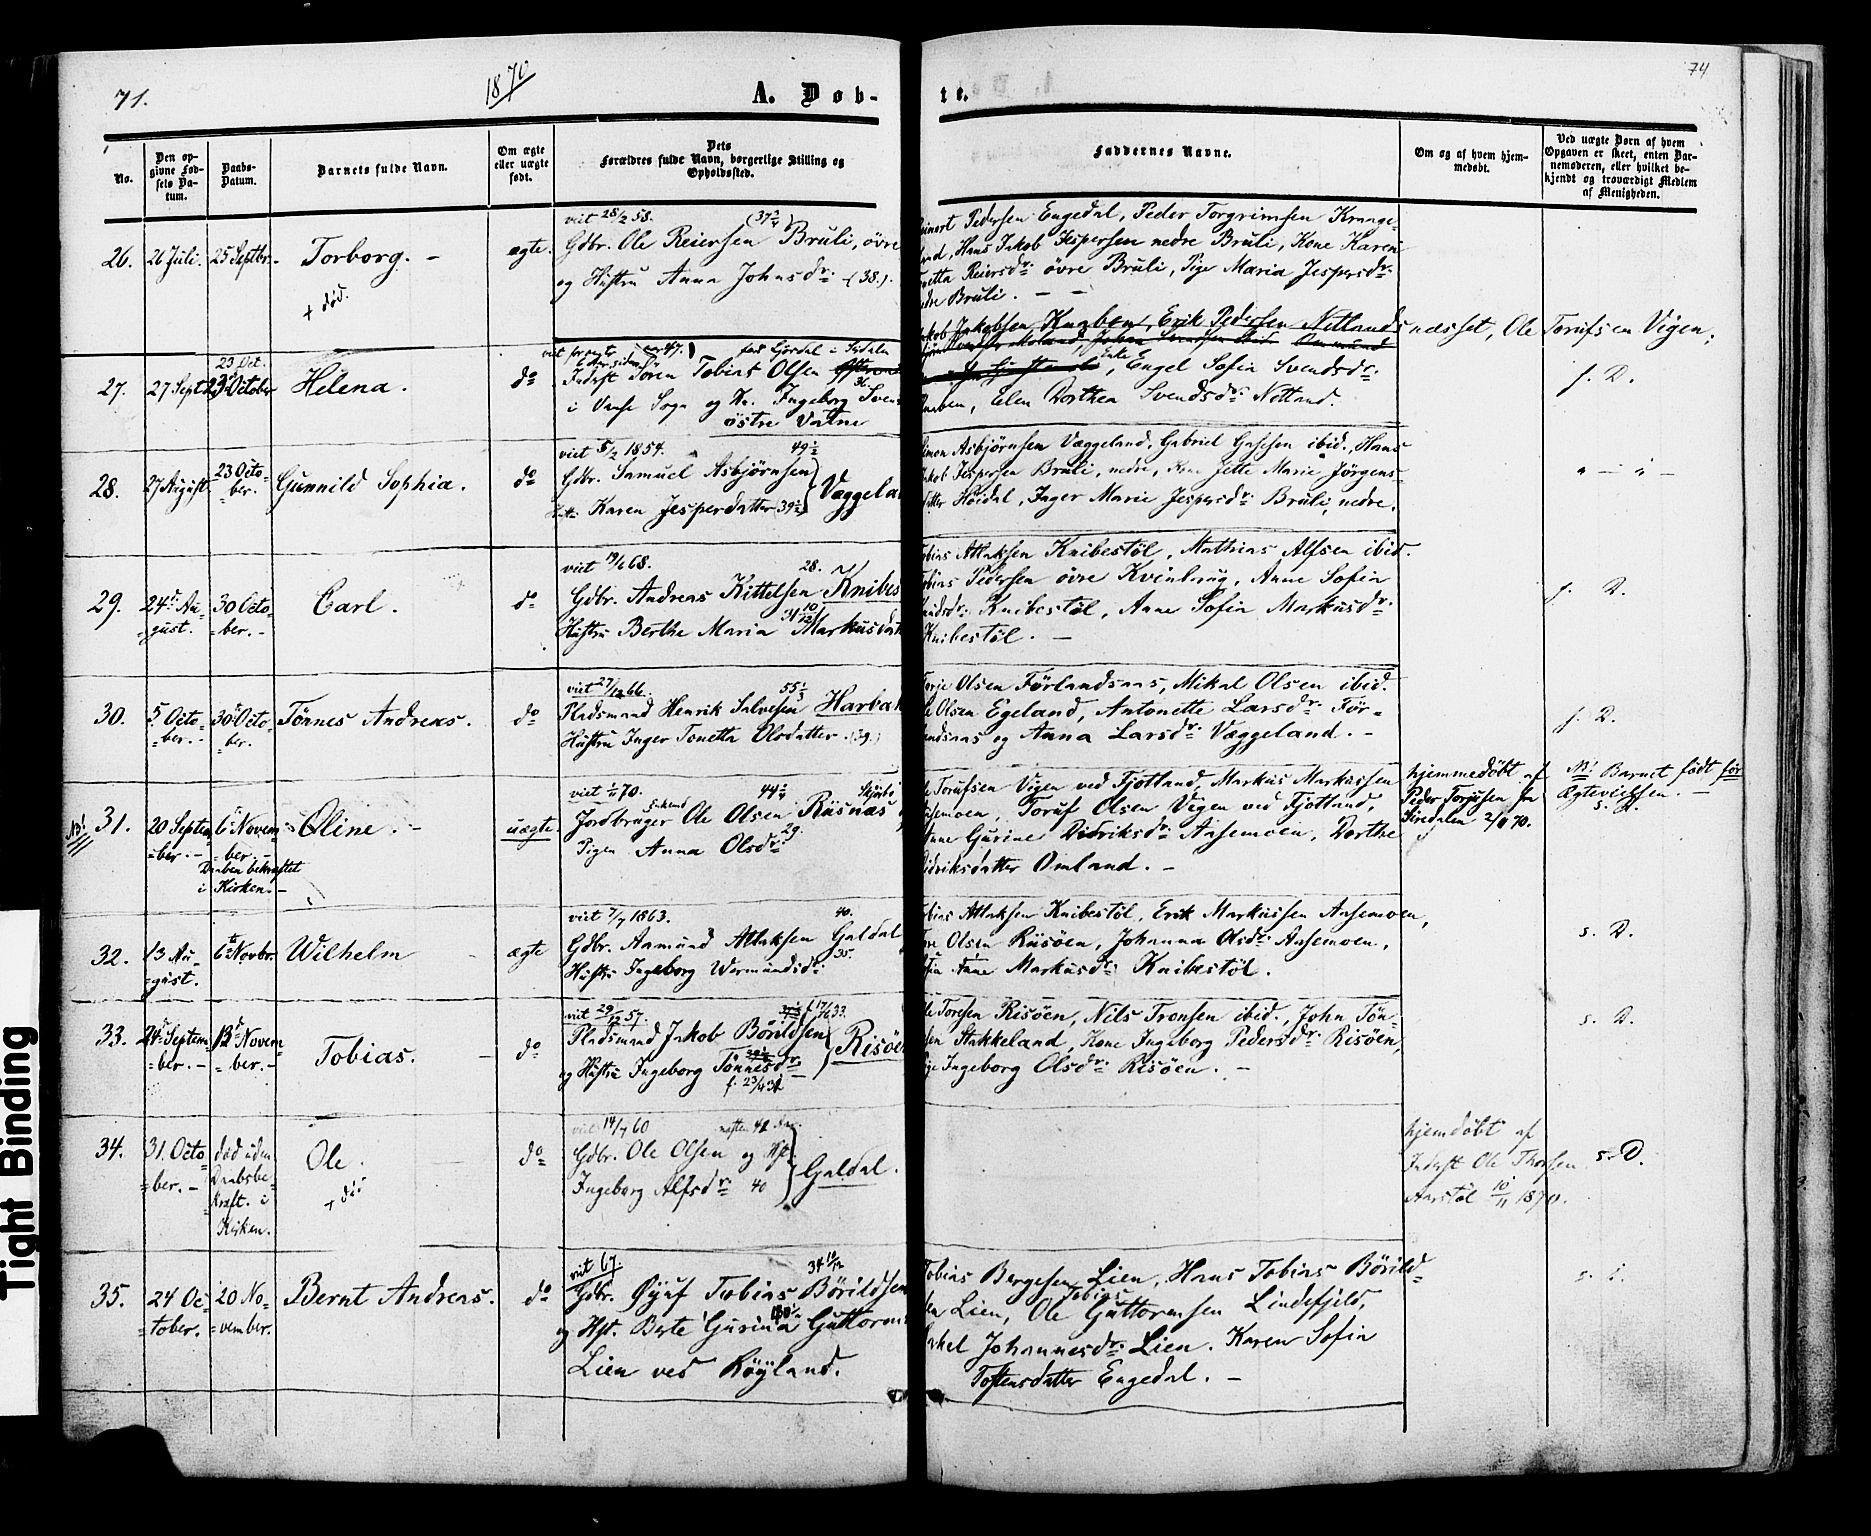 71.
1870
A. Døb-
te.
74
No.
Den opgivne Fødsels Datum.
Daabs-Datum.
Barnets fulde Navn.
Om ægte eller uægte født.
Dets Forældres fulde Navn, borgerlige Stilling og Opholdssted.
Faddernes Navne.
Om og af hvem hjemmedøbt.
Ved uægte Børn af hvem Opgaven er skeet, enten Barnemoderen, eller hvilket bekjendt og troværdigt Medlem af Menigheden.
26.
26 Juli.
25 Septbr.
Torborg. -
+ død.
ægte.
viet 28/2 58.
Gdbr. Ole Reiersen Bruli, øvre
og Hustru Anna Johnsdr. (38.)
Pedersen Engedal, Peder Torgrimsen Krage-
Hans Jakob Jespersen nedre Bruli, Kone Karen
Reiersdr. øvre Bruli, Pige Maria Jespersdr.
Bruli. - -
27.
27 Sept.
23 October
Helena.
do
Inderst Sören Tobias Olsen
i Vanse Sogn og Ingeborg
östre Vatne
Jakobsen Knaben, Erik Pedersen Netlandsnæsset, Ole Torufsen Vigen,
Enke, Engel Sofia Svendsdr.
Elen Dorthea Svendsdr. Netland.
f. D.
28.
27 August
23 Octo-
ber.
Gunnild Sophia.
do
viet 5/2 1854.
49 1/2
Gdbr. Samuel Asbjørnsen
Karen Jesperdatter (39 1/2)
Væggela
Asbjørnsen Væggeland, Gabriel ibid, Hans
Jespersen Bruli, nedre, Kone Jette Marie Jörgens-
Höidal, Inger Marie Jespersdr. Bruli, nedre.
" - " -
29.
24d Au-
gust.
30 Octo-
ber. -
Carl.
do
viet 19/6 68.
28.
Gdbr. Andreas Kittelsen Knibes
Hustru Berthe Maria Markusdat
Atlaksen Knibestöl, Mathias Alfsen ibid.
Pedersen øvre Kvinlaug, Anne Sofia
Knibestöl, Anne Sofia Markusdr.
Knibestöl. -
f. D.
30.
5 Octo-
ber. -
30 Octo-
ber.
Tönnes Andreas.
do
viet 27/12 66.
55 1/3
Pladsmand Henrik Salvesen Harbak
Hustru Inger Tonetta Olsdatter. (39.)
Olsen Förlandsaas, Mikal Olsen ibid.
Olsen Egeland, Antonette Larsdr. För-
og Anna Larsdr. Væggeland. -
f. D.
NB!
31.
20 Septem-
ber. -
6 Novem-
ber. -
Daaben bekræftet
i Kirken. -
Oline. -
uægte
44 3/4
Jordbruger Ole Olsen Risnæs
Pigen Anna Olsdr. 29.
Torufsen Vigen ved Fjotland, Markus Markussen
Toruf Olsen Vigen ved Fjotland,
Gurine Didriksdr. Aasemoen, Dorthe
Didriksdatter Omland. -
hjemmedöbt af
Peder Torjusen fra
Siredalen 2/11 70.
NB! Barnet födt för
Ægtevielsen. -
s. D.
32.
13 Au-
gust.
6te Novbr.
Wilhelm
ægte
viet 7/7 1863.
40.
Gdbr. Aamund Atlaksen Galdal
Hustru Ingeborg Wermundsdr. 35.
Atlaksen Knibestöl, Erik Markussen Aasemoen,
Olsen Risöen, Johanna Olsdr. Aasemoen,
Anne Markusdr. Knibestöl.
s. D.
33.
24d Septem-
ber. -
13d Novem-
ber. -
Tobias.
do
viet 29/12 57.
f. 17/6 33.
Pladsmand Jakob Börildsen
og Hustru Ingeborg Tönnesdr.
Risöe
Toresen Risöen, Nils Tronsen ibid., John Tön-
Stakkeland, Kone Ingeborg Pedersdr. Risöen,
Ingeborg Olsdr. Risöen. -
s. D.
34.
31. Octo-
ber. -
död uden
Daabsbe-
kræft. i
Kirken.
Ole.
+ död
do
viet 14/7 60
Gdbr. Ole Olsen og Hst
Ingeborg Alfsdr. 40
Galdal.
hjemdöbt af
Inderst Ole Thorsen
Aarstöl 10/11 1870.
s. D.
35.
24 Oc-
tober.
20 No-
vember.
Bernt Andreas.
do
viet 67
34 10/12
Gdbr. Øyuf Tobias Börildsen
og Hst. Berte Gurina Guttorm
Lien ved Röyland.
Tobias Bergesen Lien, Hans Tobias Börild-
Lien, Ole Tobias Guttormsen Lindefjeld,
Johannesdr. Lien. Karen Sofia
Toftensdatter Engedal. -
Tight Binding